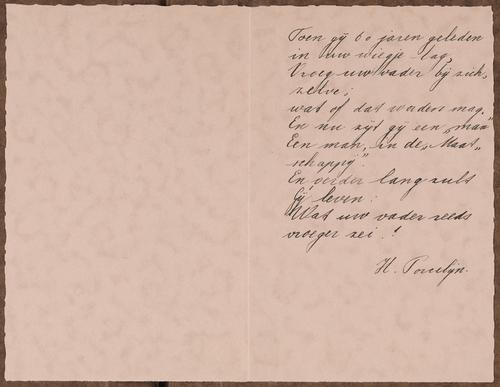 Toen gÿ 60 jaren geleden
in uw wiegje lag,
Vroeg uw vader bÿ zich
zelve;
wat of dat worden mag.
En nu zÿt gÿ een „man”
Een man, in de „Maat„
schappÿ”.
En verder lang zult
gÿ leven:
Wat uw vader reeds
vroeger zei!
H. Porcelÿn.